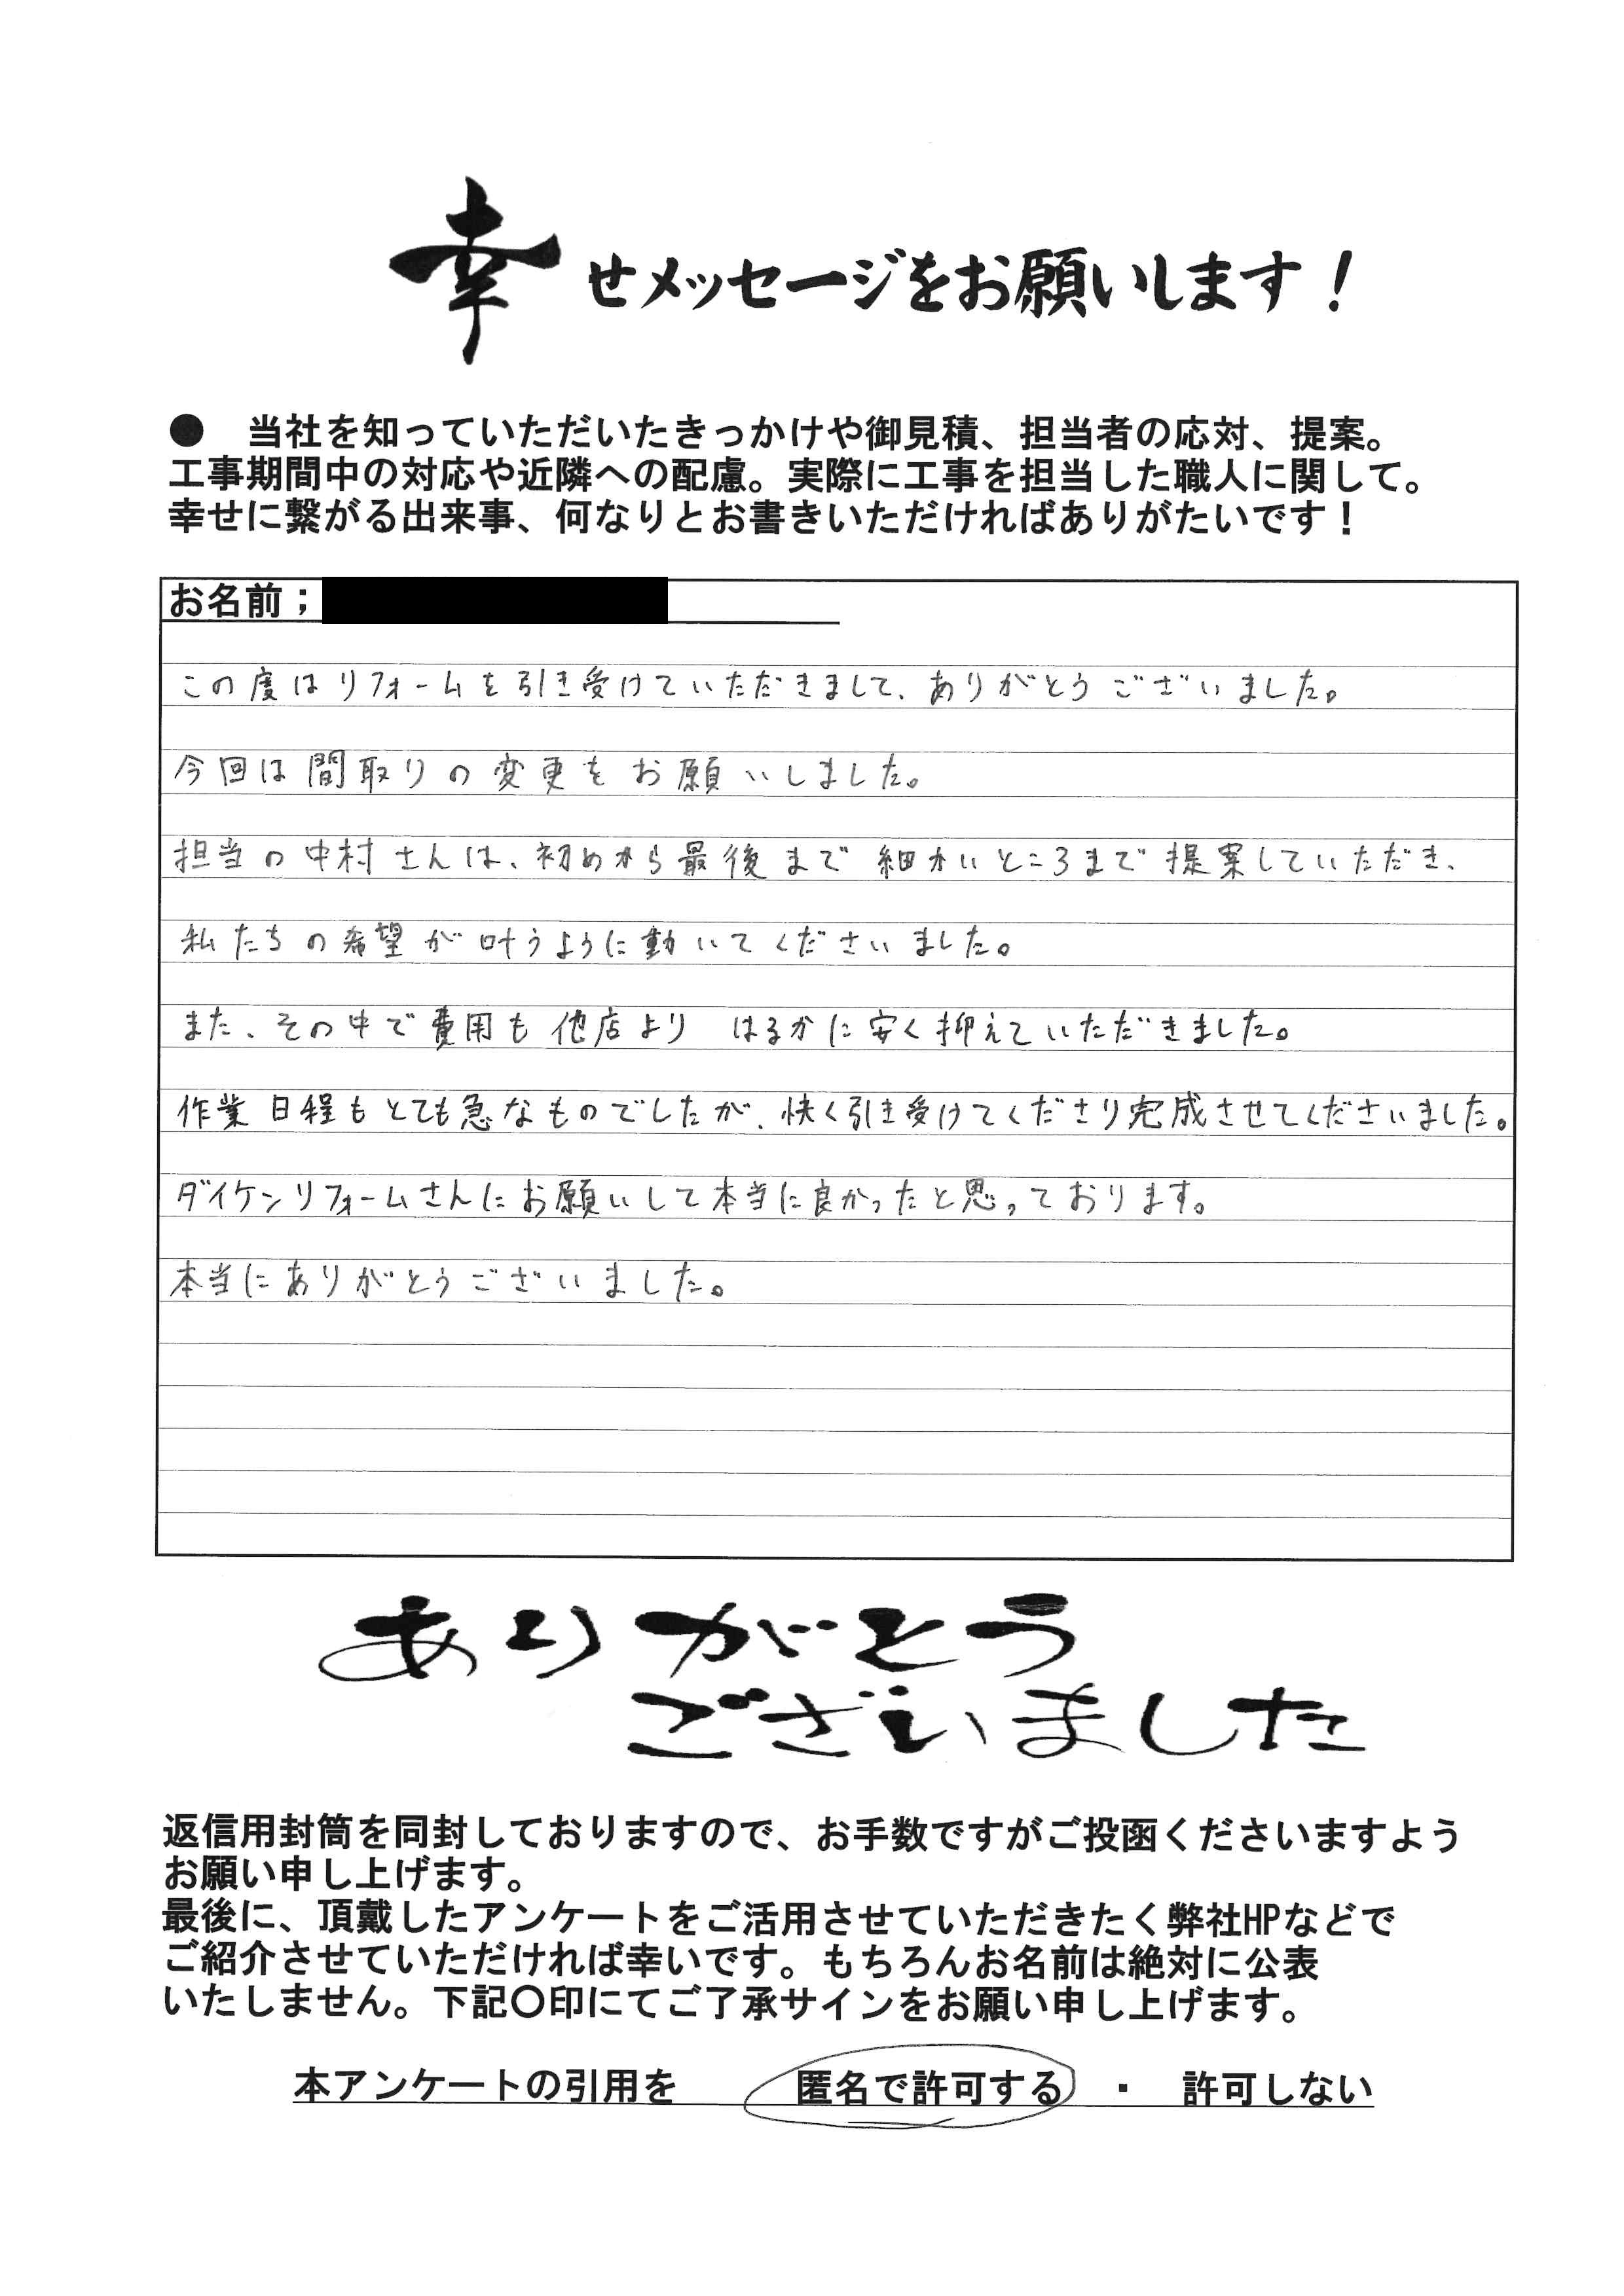 幸せメッセージをお願いします！
●　当社を知っていただいたきっかけや御見積、担当者の応対、提案。
工事期間中の対応や近隣への配慮。実際に工事を担当した職人に関して。
幸せに繋がる出来事、何なりとお書きいただければありがたいです！
お名前；
この度はリフォームを引き受けていただきまして、ありがとうございました。
今回は間取りの変更をお願いしました。
担当の中村さんは、初めから最後まで細かいところまで提案していただき、
私たちの希望が叶うように動いてくださいました。
また、その中で費用も他店より　はるかに安く抑えていただきました。
作業日程もとても急なものでしたが、快く引き受けてくださり完成させてくださいました。
ダイケンリフォームさんにお願いして本当に良かったと思っております。
本当にありがとうございました。
ありがとう
ございました
返信用封筒を同封しておりますので、お手数ですがご投函くださいますよう
お願い申し上げます。
最後に、頂戴したアンケートをご活用させていただきたく弊社HPなどで
ご紹介させていただければ幸いです。もちろんお名前は絶対に公表
いたしません。下記〇印にてご了承サインをお願い申し上げます。
本アンケートの引用を　匿名で許可する　・　許可しない